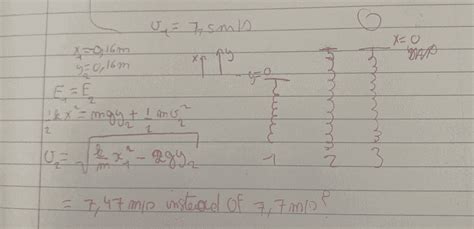 v₁ = 7,5m/s
x₁=0,16m
y₂=0,16m
x y y=0 x=0
E₁ = E₂
½kx² = mgy₂ + ½mv₂²
v₂ = √(k/m x₁² - 2gy₂)
1 2 3
= 7,47m/s instead of 7,7m/s?